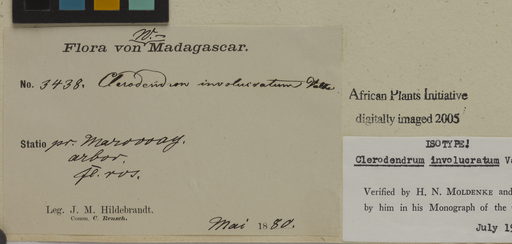 W.-
Flora von Madagascar.
No. 3438. Clerodendron involucratum Vatke
Statio pr. Marovoay.
arbor.
fl. ros.
Leg. J. M. Hildebrandt.
Comm. C. Rensch.
Mai 1880.
African Plants Initiative
digitally imaged 2005
ISOTYPE!
Clerodendrum involucratum V
Verified by H. N. MOLDENKE and
by him in his Monograph of the
July 19